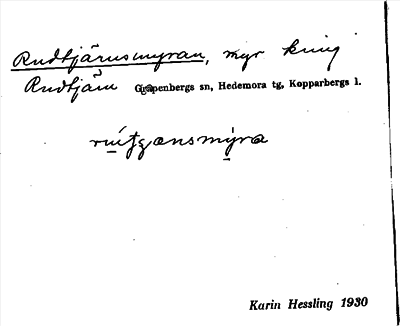 Rudtjärnsmyran, myr kring
Rudtjärn Garpenbergs sn, Hedemora tg, Kopparbergs l.
Karin Hessling 1930